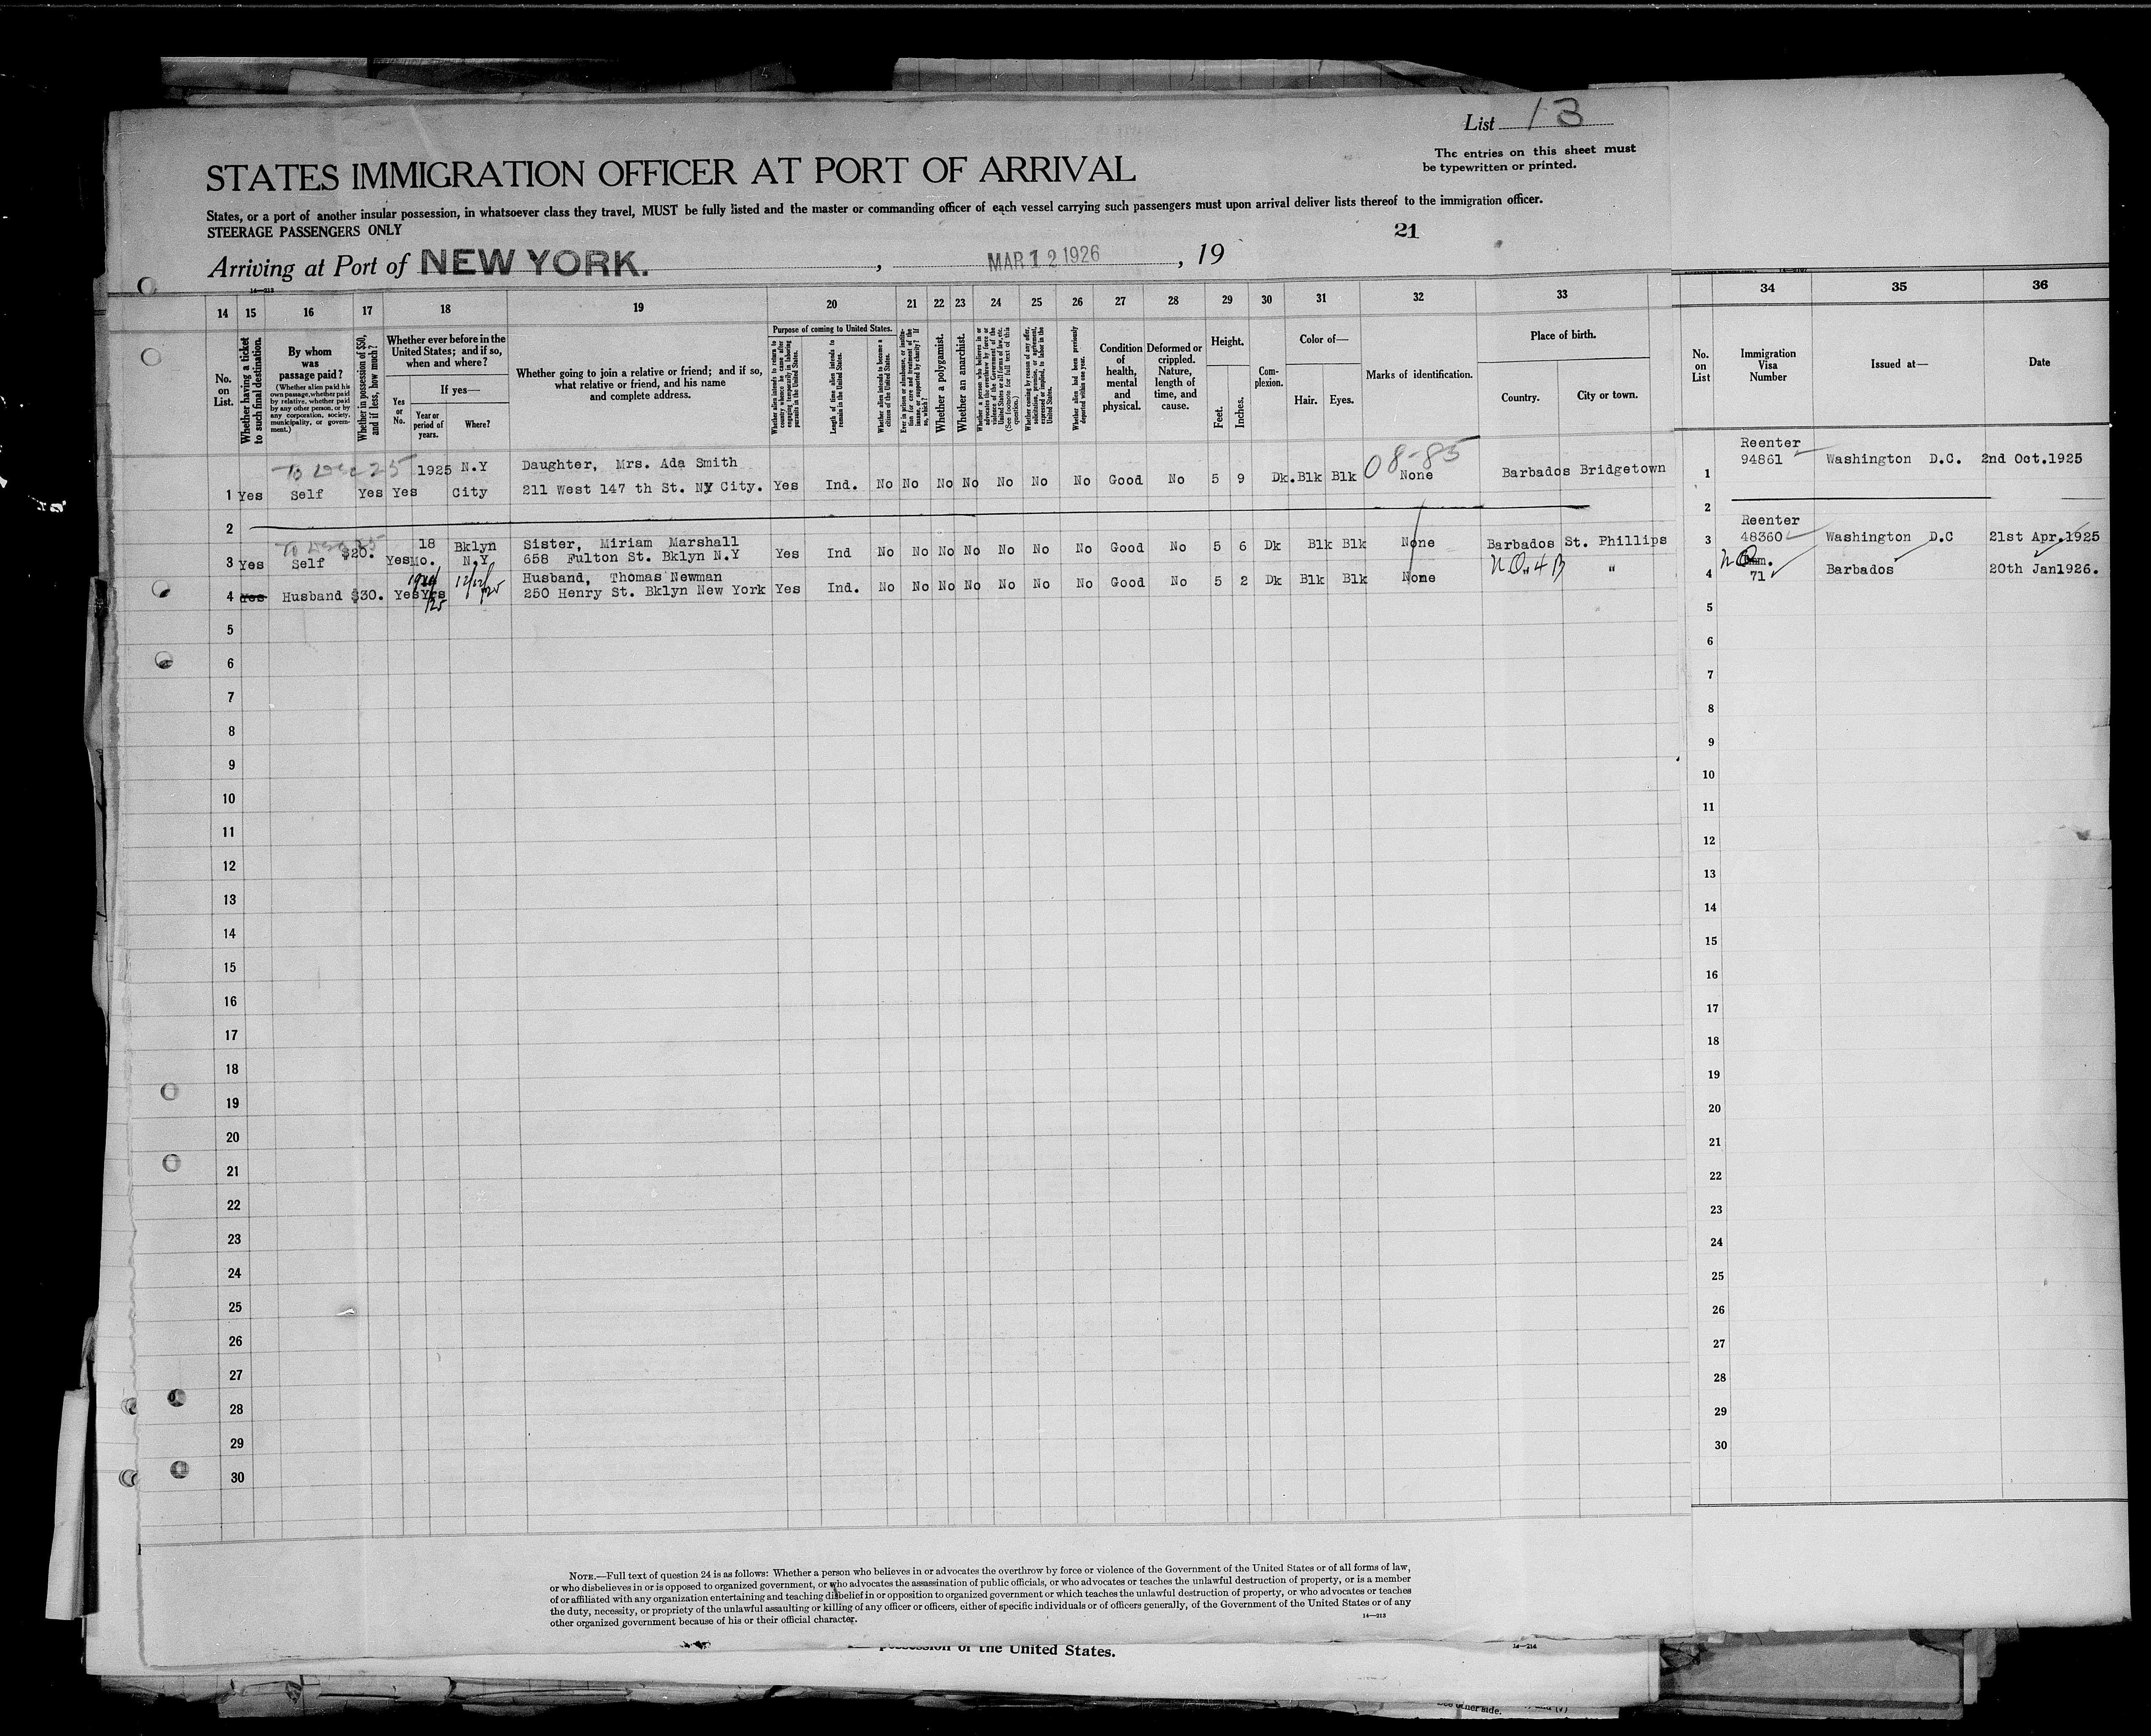 List 13
The entries on this sheet must
be typewritten or printed.
STATES IMMIGRATION OFFICER AT PORT OF ARRIVAL
States, or a port of another insular possession, in whatsoever class they travel, MUST be fully listed and the master or commanding officer of each vessel carrying such passengers must upon arrival deliver lists thereof to the immigration officer.
STEERAGE PASSENGERS ONLY
21
Arriving at Port of NEW YORK. , MAR 12 1926 , 19
14—213
14 15 16 17 18 19 20 21 22 23 24 25 26 27 28 29 30 31 32 33 34 35 36
No. on List.
Whether having a ticket to such final destination.
By whom was passage paid?
(Whether alien paid his own passage, whether paid by relative, whether paid by any other person, or by any corporation, society, municipality, or government.)
Whether in possession of $50, and if less, how much?
Whether ever before in the United States; and if so, when and where?
Yes or No.
If yes—
Year or period of years.
Where?
Whether going to join a relative or friend; and if so, what relative or friend, and his name and complete address.
Purpose of coming to United States.
Whether alien intends to return to country whence he came after engaging temporarily in laboring pursuits in the United States.
Length of time alien intends to remain in the United States.
Whether alien intends to become a citizen of the United States.
Ever in prison or almshouse, or institution for care and treatment of the insane, or supported by charity? If so, which?
Whether a polygamist.
Whether an anarchist.
Whether a person who believes in or advocates the overthrow by force or violence of the Government of the United States or all forms of law, etc. (See footnote for full text of this question.)
Whether coming by reason of any offer, solicitation, promise, or agreement, expressed or implied, to labor in the United States.
Whether alien had been previously deported within one year.
Condition of health, mental and physical.
Deformed or crippled. Nature, length of time, and cause.
Height.
Feet.
Inches.
Complexion.
Color of—
Hair.
Eyes.
Marks of identification.
Place of birth.
Country.
City or town.
No. on List
Immigration Visa Number
Issued at—
Date
To Dec 25 1925 N.Y Daughter, Mrs. Ada Smith 08-85 Reenter
1 Yes Self Yes Yes City 211 West 147 th St. NY City. Yes Ind. No No No No No No No Good No 5 9 Dk. Blk Blk None Barbados Bridgetown 1 94861 Washington D.C. 2nd Oct.1925
2 2
18 Bklyn Sister, Miriam Marshall Reenter
3 Yes Self $20. Yes Mo. N.Y 658 Fulton St. Bklyn N.Y Yes Ind No No No No No No No Good No 5 6 Dk Blk Blk None Barbados St. Phillips 3 48360 Washington D.C 21st Apr.1925
12/12/25 Husband, Thomas Newman N.Q. 4 B "
4 Yes Husband $30. Yes Yrs 250 Henry St. Bklyn New York Yes Ind. No No No No No No No Good No 5 2 Dk Blk Blk None 4 71 Barbados 20th Jan1926.
5 5
6 6
7 7
8 8
9 9
10 10
11 11
12 12
13 13
14 14
15 15
16 16
17 17
18 18
19 19
20 20
21 21
22 22
23 23
24 24
25 25
26 26
27 27
28 28
29 29
30 30
NOTE.—Full text of question 24 is as follows: Whether a person who believes in or advocates the overthrow by force or violence of the Government of the United States or of all forms of law,
or who disbelieves in or is opposed to organized government, or who advocates the assassination of public officials, or who advocates or teaches the unlawful destruction of property, or is a member
of or affiliated with any organization entertaining and teaching disbelief in or opposition to organized government or which teaches the unlawful destruction of property, or who advocates or teaches
the duty, necessity, or propriety of the unlawful assaulting or killing of any officer or officers, either of specific individuals or of officers generally, of the Government of the United States or of any
other organized government because of his or their official character.
14—213
possession of the United States.
14—214
See other side.